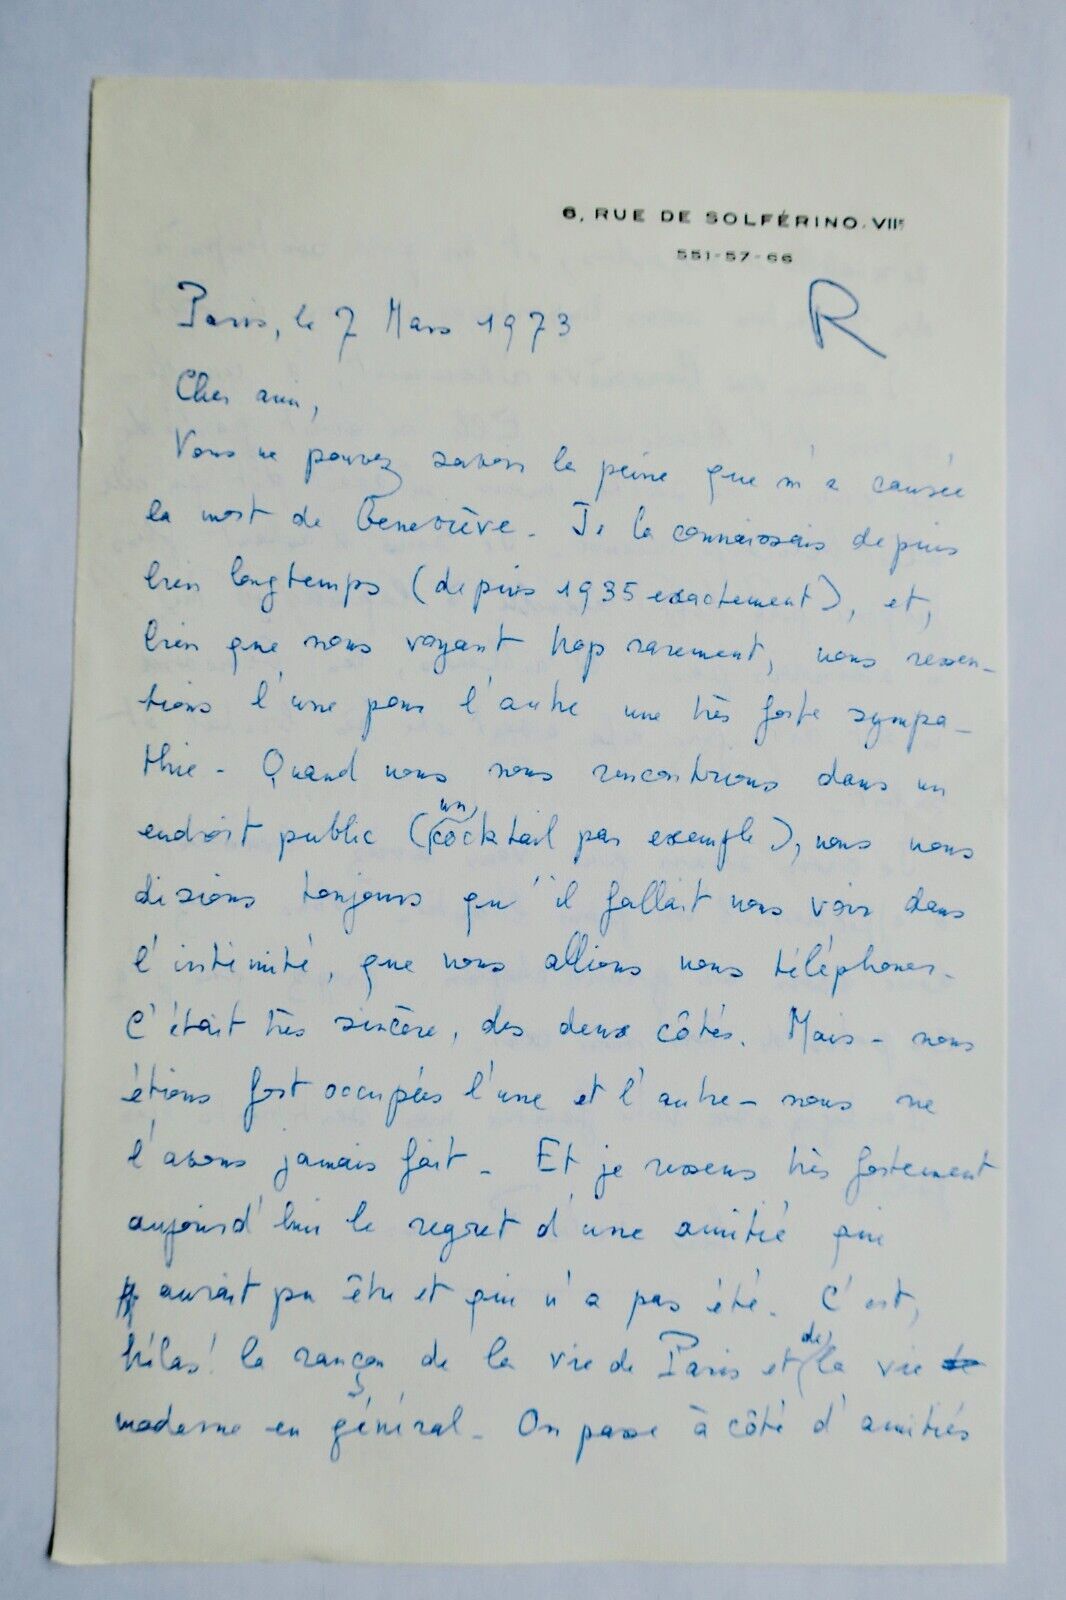 6, RUE DE SOLFÉRINO. VIIE
551-57-66
R
Paris, le 7 Mars 1973
Cher ami,
Vous ne pouvez savoir la peine que m'a causée
la mort de Geneviève. Je la connaissais depuis
bien longtemps (depuis 1935 exactement), et,
bien que nous voyant trop rarement, nous ressen-
tions l'une pour l'autre une très forte sympa-
thie. Quand nous nous rencontrions dans un
endroit public (un cocktail par exemple), nous nous
disions toujours qu'il fallait nous voir dans
l'intimité, que nous allions nous téléphoner.
C'était très sincère, des deux côtés. Mais - nous
étions fort occupées l'une et l'autre - nous ne
l'avons jamais fait. Et je ressens très fortement
aujourd'hui le regret d'une amitié qui
aurait pu être et qui n'a pas été. C'est,
hélas! la rançon de la vie de Paris et de la vie
moderne en général. On passe à côté d'amitiés